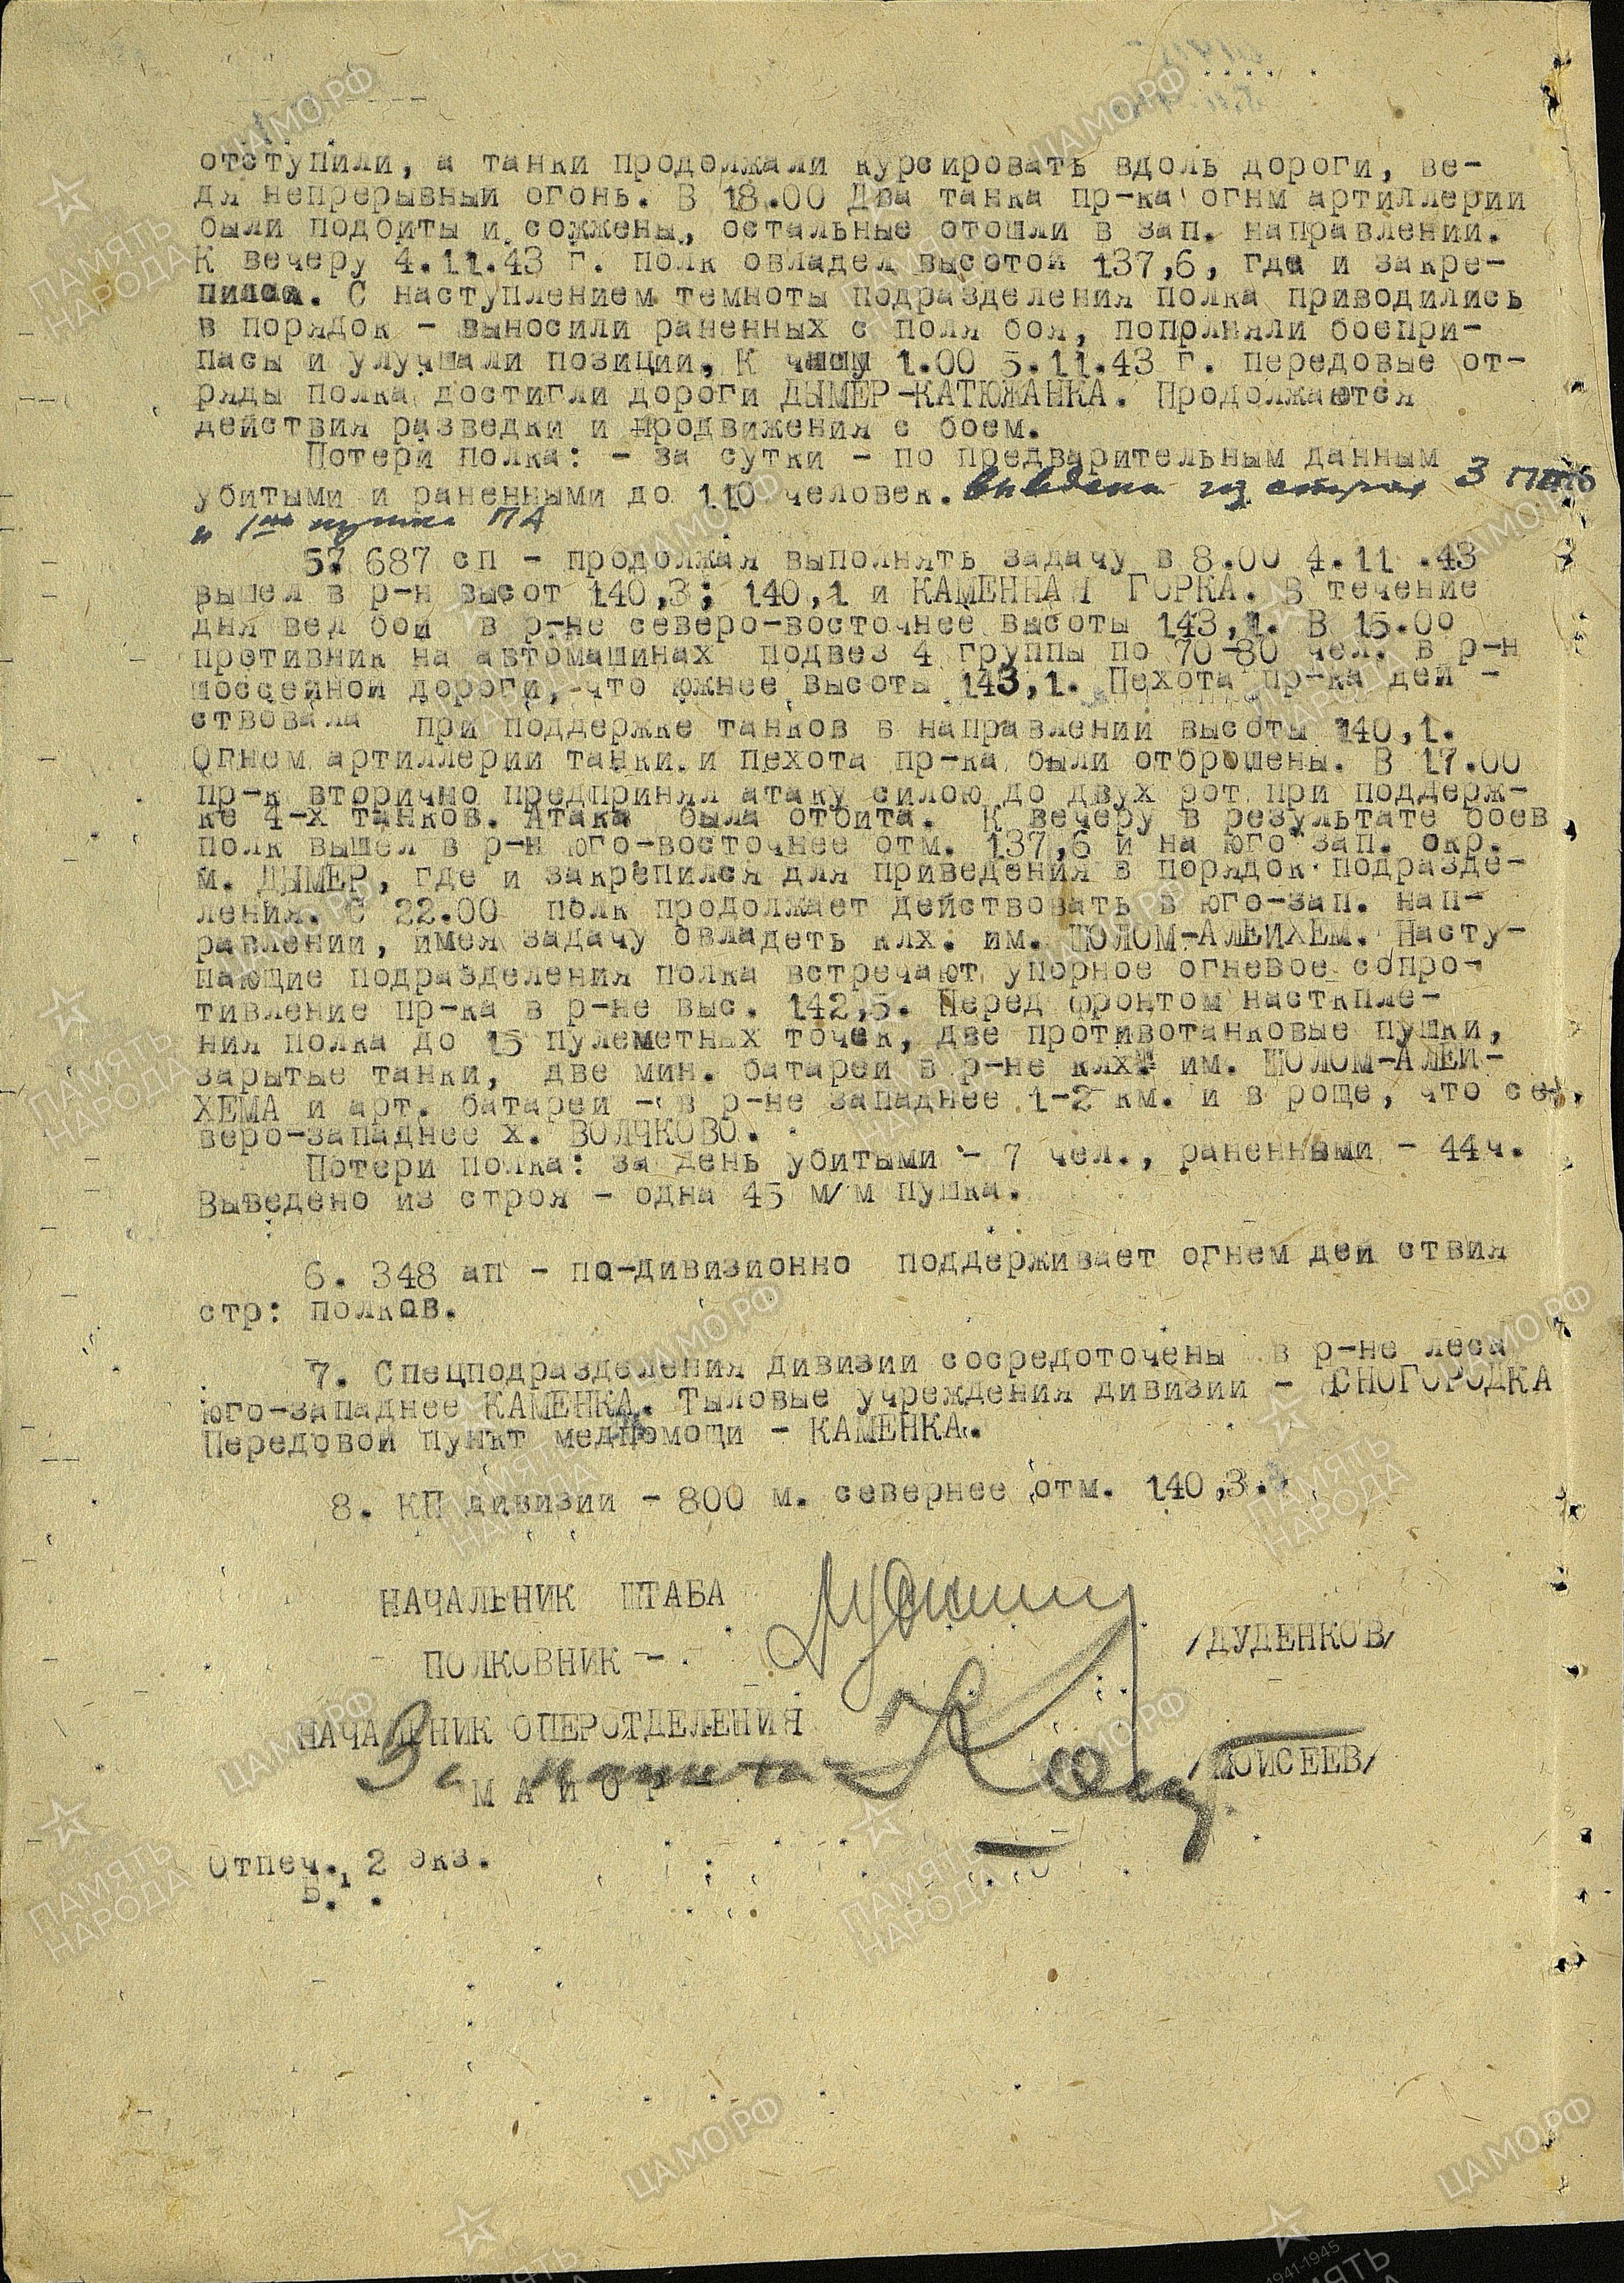 отступили, а танки продолжали курсировать вдоль дороги, ве-
дя непрерывный огонь. В 18.00 Два танка пр-ка огнм артиллерии
были подбиты и сожжены, остальные отошли в зап. направлении.
К вечеру 4.11.43 г. полк овладел высотой 137,6, где и закре-
пился. С наступлением темноты подразделения полка приводились
в порядок - выносили раненных с поля боя, пополняли боепри-
пасы и улучшали позиции. К часу 1.00 5.11.43 г. передовые от-
ряды полка достигли дороги ДЫМЕР-КАТЮЖАНКА. Продолжаются
действия разведки и продвижения с боем.
Потери полка: - за сутки - по предварительным данным
убитыми и раненными до 110 человек. Выведены из строя 3
и пушка ПА
5. 687 сп - продолжая выполнять задачу в 8.00 4.11 .43
вышел в р-н высот 140,3; 140,1 и КАМЕННАЯ ГОРКА. В течение
дня вел бой в р-не северо-восточнее высоты 143,1. В 15.00
противник на автомашинах подвез 4 группы по 70-80 чел. в р-н
шоссейной дороги, что южнее высоты 143,1. Пехота пр-ка дей -
ствовала при поддержке танков в направлении высоты 140,1.
Огнем артиллерии танки и пехота пр-ка были отброшены. В 17.00
пр-к вторично предпринял атаку силою до двух рот при поддерж-
ке 4-х танков. Атака была отбита. К вечеру в результате боев
полк вышел в р-н юго-восточнее отм. 137,6 и на юго зап. окр.
м. ДЫМЕР, где и закрепился для приведения в порядок подразде-
ления. С 22.00 полк продолжает действовать в юго-зап. нап-
равлении, имея задачу овладеть клх. им. ШОЛОМ-АЛЕЙХЕМ. Насту-
пающие подразделения полка встречают упорное огневое сопро-
тивление пр-ка в р-не выс. 142,5. Перед фронтом насткпле-
ния полка до 15 пулеметных точек, две противотанковые пушки,
зарытые танки, две мин. батареи в р-не клх. им. ШОЛОМ-АЛЕЙ-
ХЕМА и арт. батареи - в р-не западнее 1-2 км. и в роще, что се-
веро-западнее х. ВОЛЧКОВО.
Потери полка: за день убитыми - 7 чел., раненными - 44ч.
Выведено из строя - одна 45 м/м пушка.
6. 348 ап - по-дивизионно поддерживает огнем дей ствия
стр: полков.
7. Спецподразделения дивизии сосредоточены в р-не леса
юго-западнее КАМЕНКА. Тыловые учреждения дивизии - ЯСНОГОРОДКА
Передовой пункт медпомощи - КАМЕНКА.
8. КП дивизии - 800 м. севернее отм. 140,3.
НАЧАЛЬНИК ШТАБА
ПОЛКОВНИК - /ДУДЕНКОВ/
НАЧАЛЬНИК ОПЕРОТДЕЛЕНИЯ
МАЙОР /МОИСЕЕВ/
Отпеч. 2 экз.
Б.